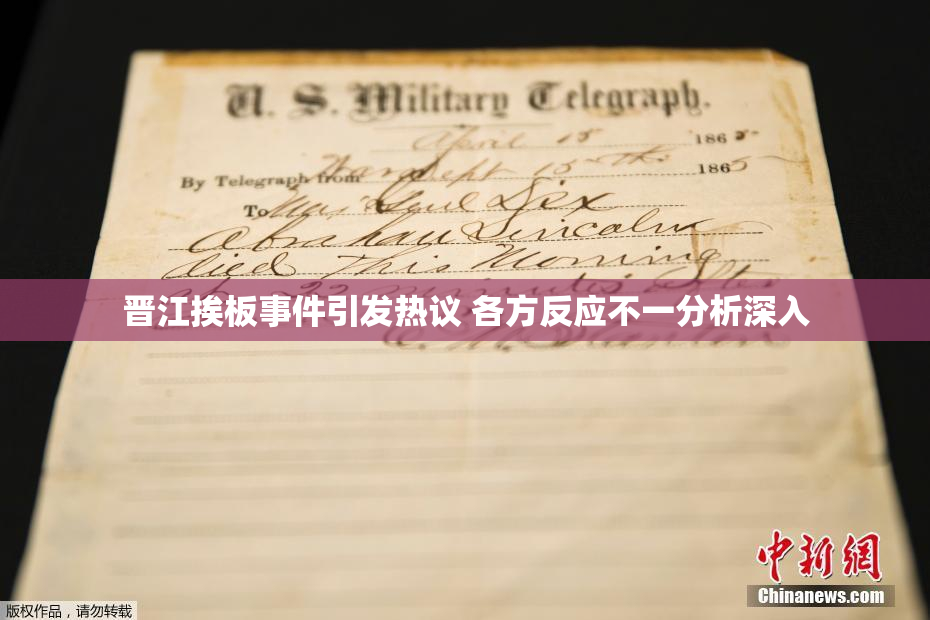 U. S. Military Telegraph.
April 15 1865
By Telegraph from War Dept 15th 1865
To Maj Genl Dix
Abraham Lincoln
died This Morning
at 22 minutes after
晋江挨板事件引发热议 各方反应不一分析深入
E. M. Stanton
中新网
Chinanews.com
版权作品，请勿转载